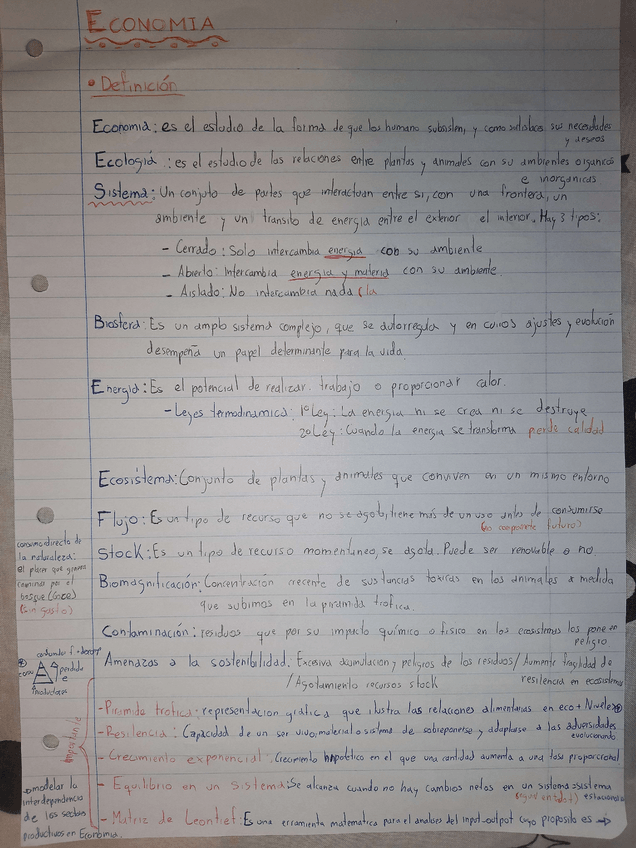 ECONOMIA
• Definición
Economia: es el estudio de la forma de que los humano subsisten, y como satisfacos sus necesidades
y deseos
Ecologia : es el estudio de las relaciones entre plantas y animales con su ambientes organicos
e inorganicos
Sistema: Un conjuto de partes que interactuan entre si, con una frontera, un
ambiente y un transito de energia entre el exterior el interior. Hay 3 tipos:
- Cerrado: Solo intercambia energia con su ambiente
- Abierto: Intercambia energia y materia con su ambiente
- Aislado: No intercambia nada (la
Biosfera: Es un amplo sistema complejo, que se autorregula y en cuios ajustes y evolución
desempeña un papel determinante para la vida.
Energia: Es el potencial de realizar trabajo o proporcionar calor.
- Leyes termodinamica: 1ª Ley: La energia ni se crea ni se destruye
2ª Ley: Cuando la energia se transforma pierde calidad
Ecosistema: Conjunto de plantas y animales que conviven en un mismo entorno
Flujo: Es un tipo de recurso que no se agota, tiene más de un uso antes de consumirse
(no compromete futuro)
Stock: Es un tipo de recurso momentaneo, se agota. Puede ser renovable o no
consumo directo de
la naturaleza:
el placer que genera
caminar por el
bosque (Goce)
(Sin gasto)
Biomagnificación: Concentración crecente de sustancias toxicas en los animales a medida
que subimos en la piramida trofica.
Contaminación: residuos que por su impacto químico o fisico en los ecosistemas los pone en
peligro
Amenazas a la sostenibilidad. Excesiva acumulacion y peligros de los residuos / Aumente fragilidad de
/ Agotamiento recursos stock
resilencia en ecosistemas
pierde
e
Productores
importante
- Piramide trofica: representacion gráfica que ilustra las relaciones alimentarias en eco + Niveles
- Resilencia: Capacidad de un ser vivo, material o sistema de sobreponerse y adaptarse a las adversidades
evolucionando
- Crecimiento exponencial: Crecimiento hipotetico en el que una cantidad aumenta a una tasa proporcional
- Equilibrio en un sistema: Se alcanza cuando no hay cambios netos en un sistema = sistema
estacionario
- Matriz de Leontief: Es una erramienta matematica para el analises del input-output cuyo proposito es →
→ modelar la
interdependencia
de los sectores
productivos en Economia.